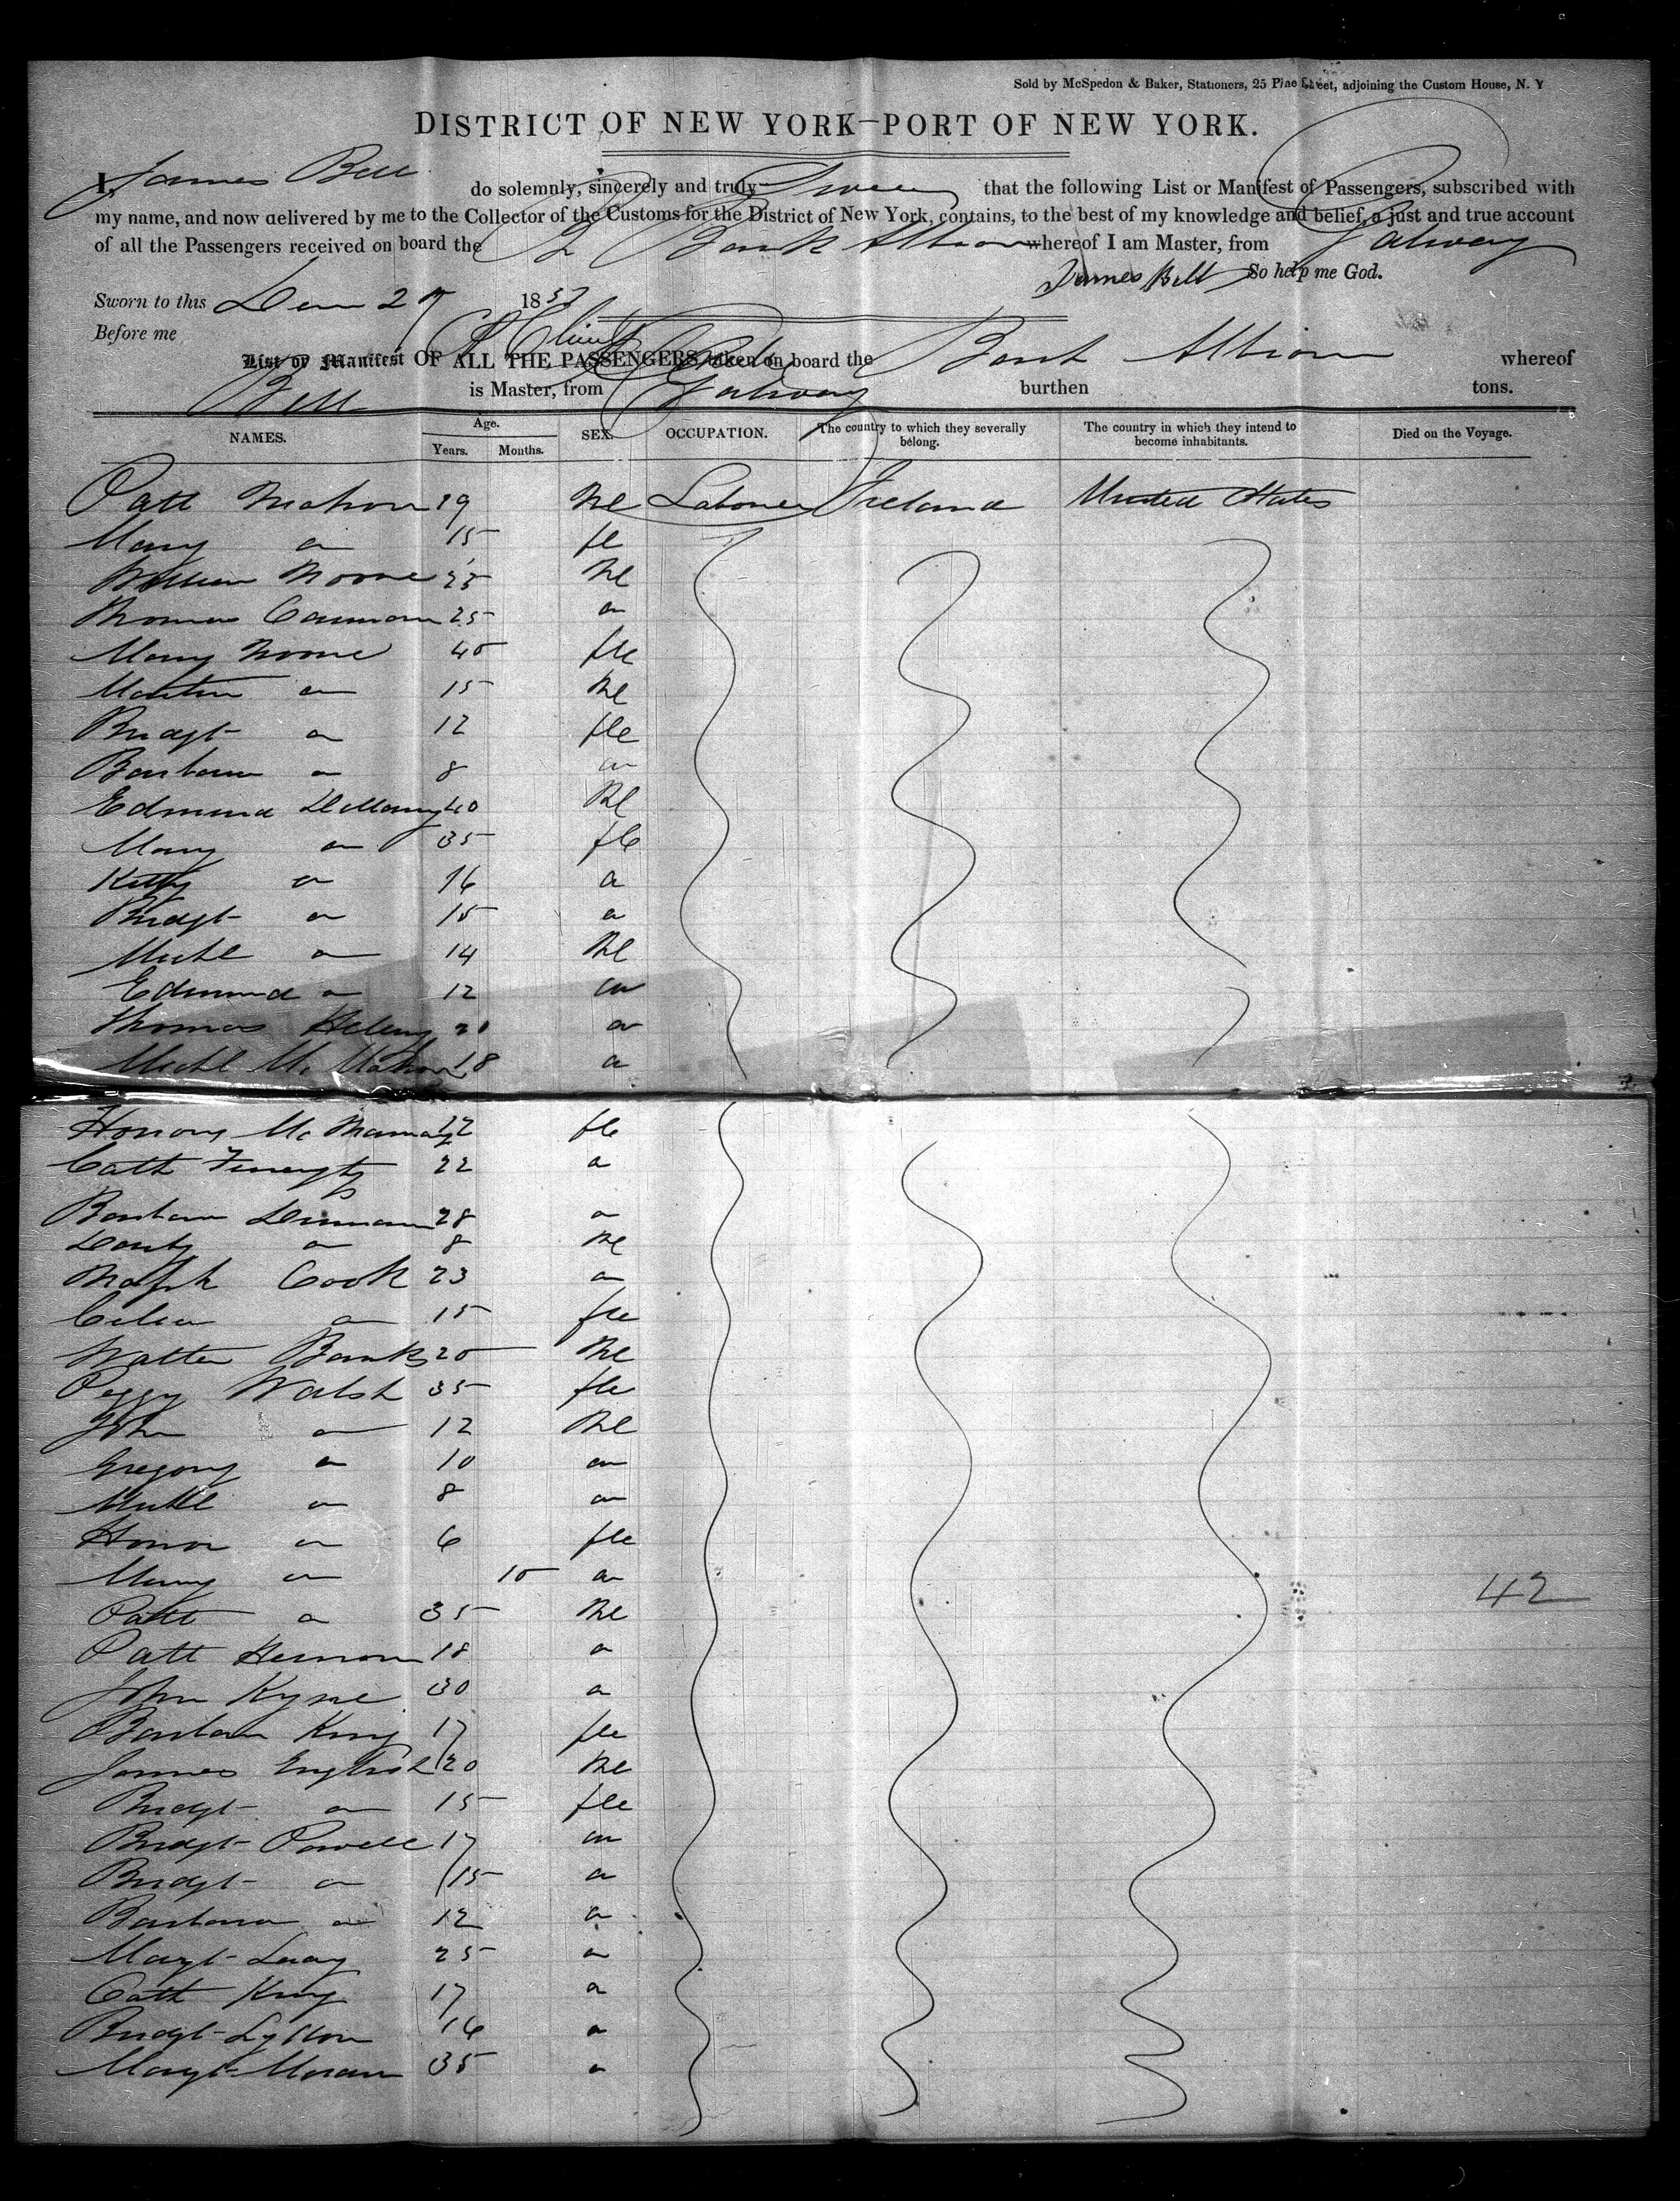 Sold by McSpedon & Baker, Stationers, 25 Pine Street, adjoining the Custom House, N. Y
DISTRICT OF NEW YORK—PORT OF NEW YORK.
I, James Bell do solemnly, sincerely and truly Swear that the following List or Manifest of Passengers, subscribed with
my name, and now delivered by me to the Collector of the Customs for the District of New York, contains, to the best of my knowledge and belief, a just and true account
of all the Passengers received on board the Bark Albion whereof I am Master, from Galway
James Bell So help me God.
Sworn to this 27 18
Before me
List or Manifest OF ALL THE PASSENGERS taken on board the Bark Albion whereof
Bell is Master, from Galway burthen tons.
NAMES. Age. Years. Months. SEX. OCCUPATION. The country to which they severally belong. The country in which they intend to become inhabitants. Died on the Voyage.
Patt Mahon 19 Me Laborer Ireland United States
Mary do 15 fe
William Moore 25 Me
Thomas 25 do
Mary Moore 40 fle
Martin do 15 Me
Bridgt do 12 fle
Barbara do 8 do
Edmund 40 Me
Mary do 35 fle
Kitty do 16 do
Bridgt do 15 do
Michl do 14 Me
Edmund do 12 do
Thomas 20 do
Michl Mc Mahon 18 do
Honory Mc Namay 22 fle
Cath 22 do
Barbara 28 do
do 8 Me
Cook 23 do
do 15 fle
Walter Banks 20 Me
Peggy Walsh 35 fle
John do 12 Me
Gregory do 10 do
Michl do 8 do
Honor do 6 fle
Mary do 10 do
Patt do 35 Me
42
Patt 18 do
John Kyne 30 do
Barbara King 17 fle
James English 20 Me
Bridgt do 15 fle
Bridgt Powell 17 do
Bridgt do 15 do
Barbara do 12 do
Margt 25 do
Cath King 17 do
Bridgt 16 do
Margt Moran 35 do